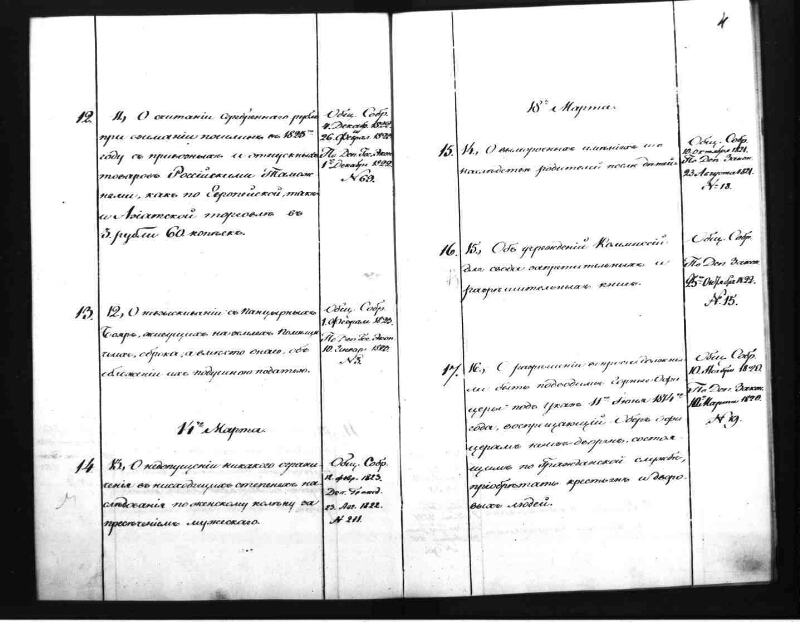 4
12. 11, О считании серебреннаго рубля
при взимании пошлин въ 1823мъ
году съ привозныхъ и отпускныхъ
товаровъ Россійскими Тамож-
нями, какъ по Европейской, такъ
и Азіатской торговлѣ въ
3. рубли 60 копѣекъ.
Общ. Собр.
4. Декаб. 1822.
26. Феврал. 1823.
По Деп. Гос. Экон.
1го Декабря 1822.
№ 69.
13. 12, О невзысканіи съ Панцырныхъ
Бояръ, живущихъ на земляхъ Помѣщи-
чьихъ, оброка, а вместо онаго, объ
обложеніи ихъ подушною податью.
Общ. Собр.
1. Февраля 1823.
По Деп. Гос. Экон.
10. Генвар. 1823.
№ 3.
14го Марта
14 13, О недопущеніи никакого ограни-
ченія въ нисходящихъ степеняхъ на-
слѣдованія по женскому колѣну за
пресѣченіемъ мужескаго.
Общ. Собр.
12. февр. 1823.
Деп. Гражд.
23. Авг. 1822.
№ 211.
18го Марта.
15. 14, О выморочныхъ имѣніяхъ и о
наслѣдствѣ родителей послѣ дѣтей.
Общ. Собр.
10. октября 1821.
По Деп. Закон.
23. Августа 1821.
№ 18.
16. 15, Объ учрежденій Коммиссій
для свода запретительныхъ и
разрѣшительныхъ книгъ.
Общ. Собр.
По Деп. Закон.
25го Октября 1822.
№ 15.
17. 16, О разрѣшеніи вопроса: должны
ли быть подводимы Горные Офи-
церы подъ указъ 11го Іюня 1814го
года, воспрещающій Оберъ-офи-
церамъ не изъ дворянъ, состоя-
щимъ по Гражданской службѣ,
пріобрѣтать крестьянъ и дворо-
выхъ людей.
Общ. Собр.
10. Ноября 1820.
По Деп. Закон.
10го Марта 1820.
№ 19.